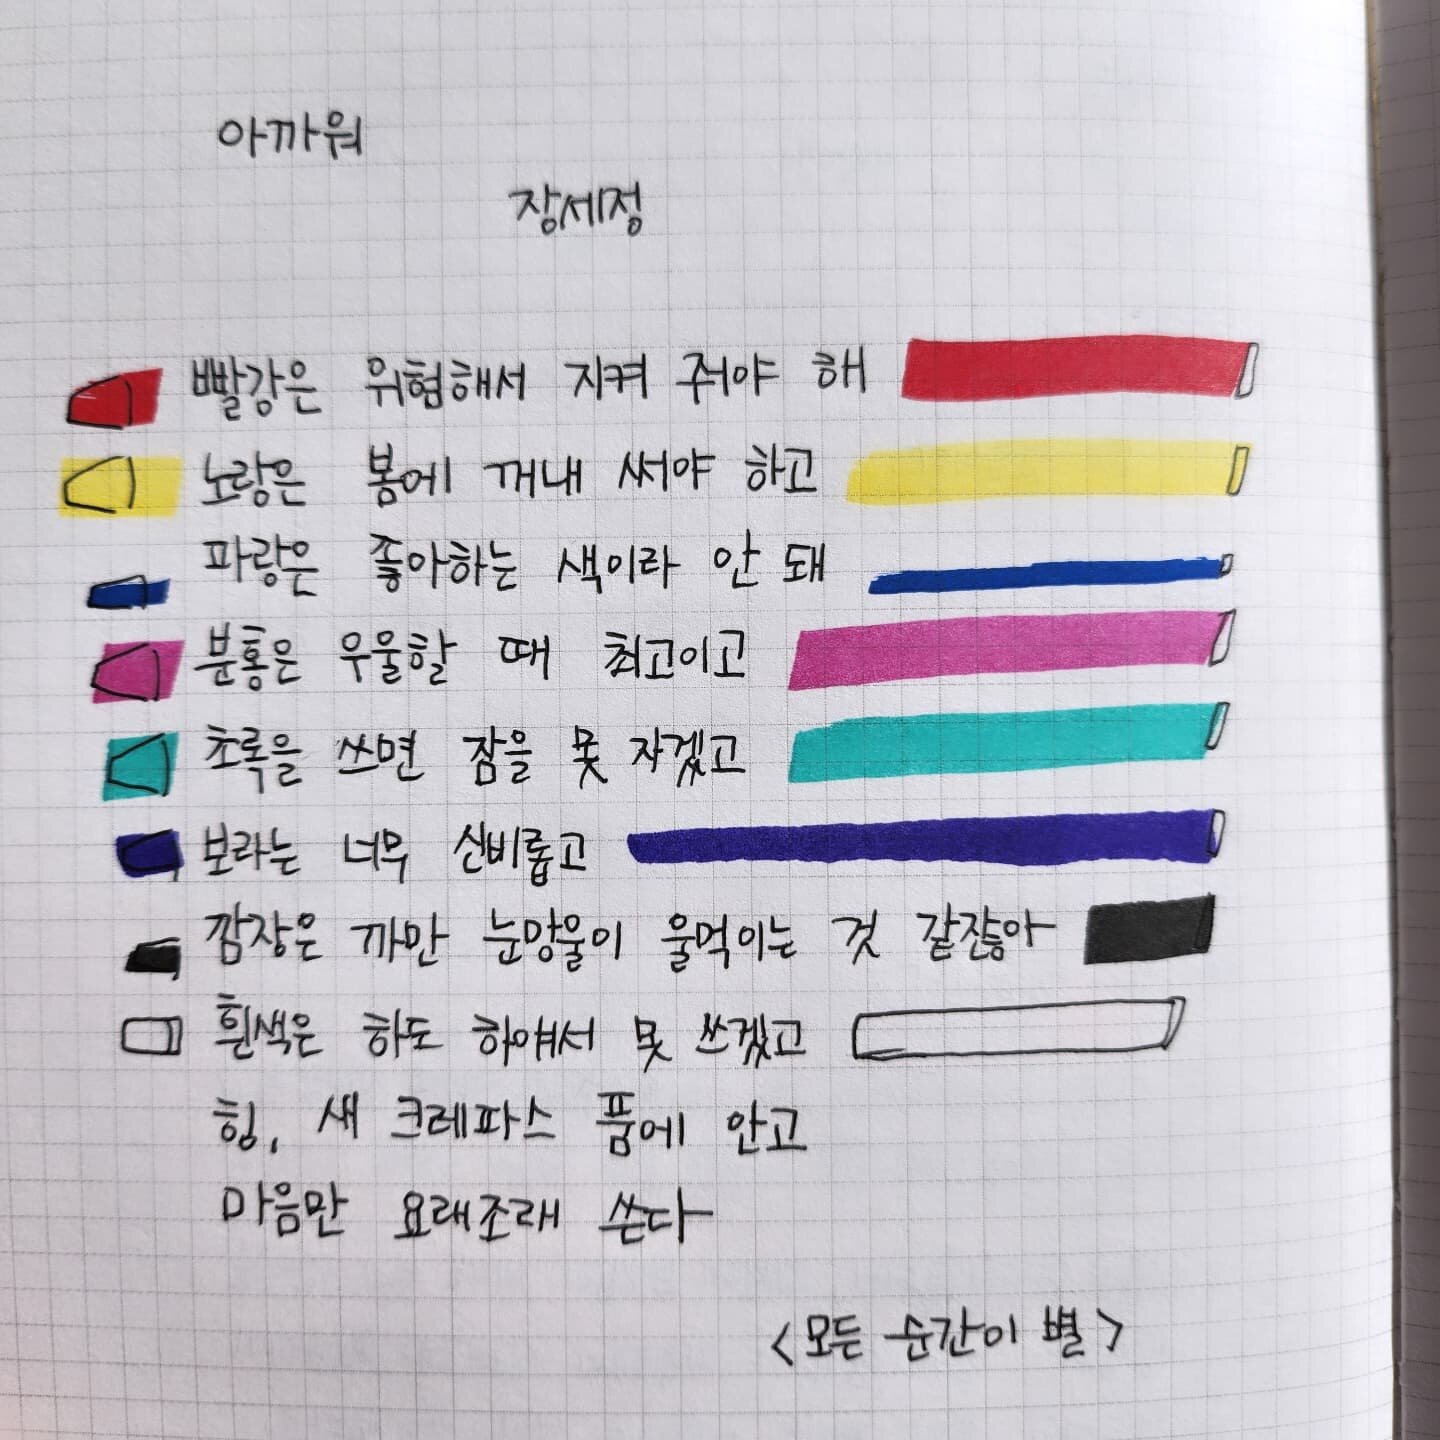 아까워
장세정
빨강은 위험해서 지켜 줘야 해
노랑은 봄에 꺼내 써야 하고
파랑은 좋아하는 색이라 안 돼
분홍은 우울할 때 최고이고
초록을 쓰면 잠을 못 자겠고
보라는 너무 신비롭고
깜장은 까만 눈망울이 울먹이는 것 같잖아
흰색은 하도 하얘서 못 쓰겠고
힝, 새 크레파스 품에 안고
마음만 요래조래 쓴다
<모든 순간이 별>